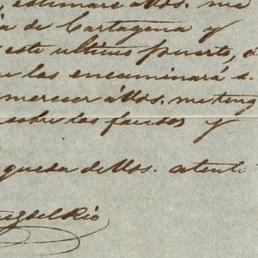 , estimaré á Vds. me
ia de Cartagena y
este ultimo puerto, 
las encaminará s
merecer á Vds. me teng
sobre los fardos y
queda de Vds. atent
ez del Rio